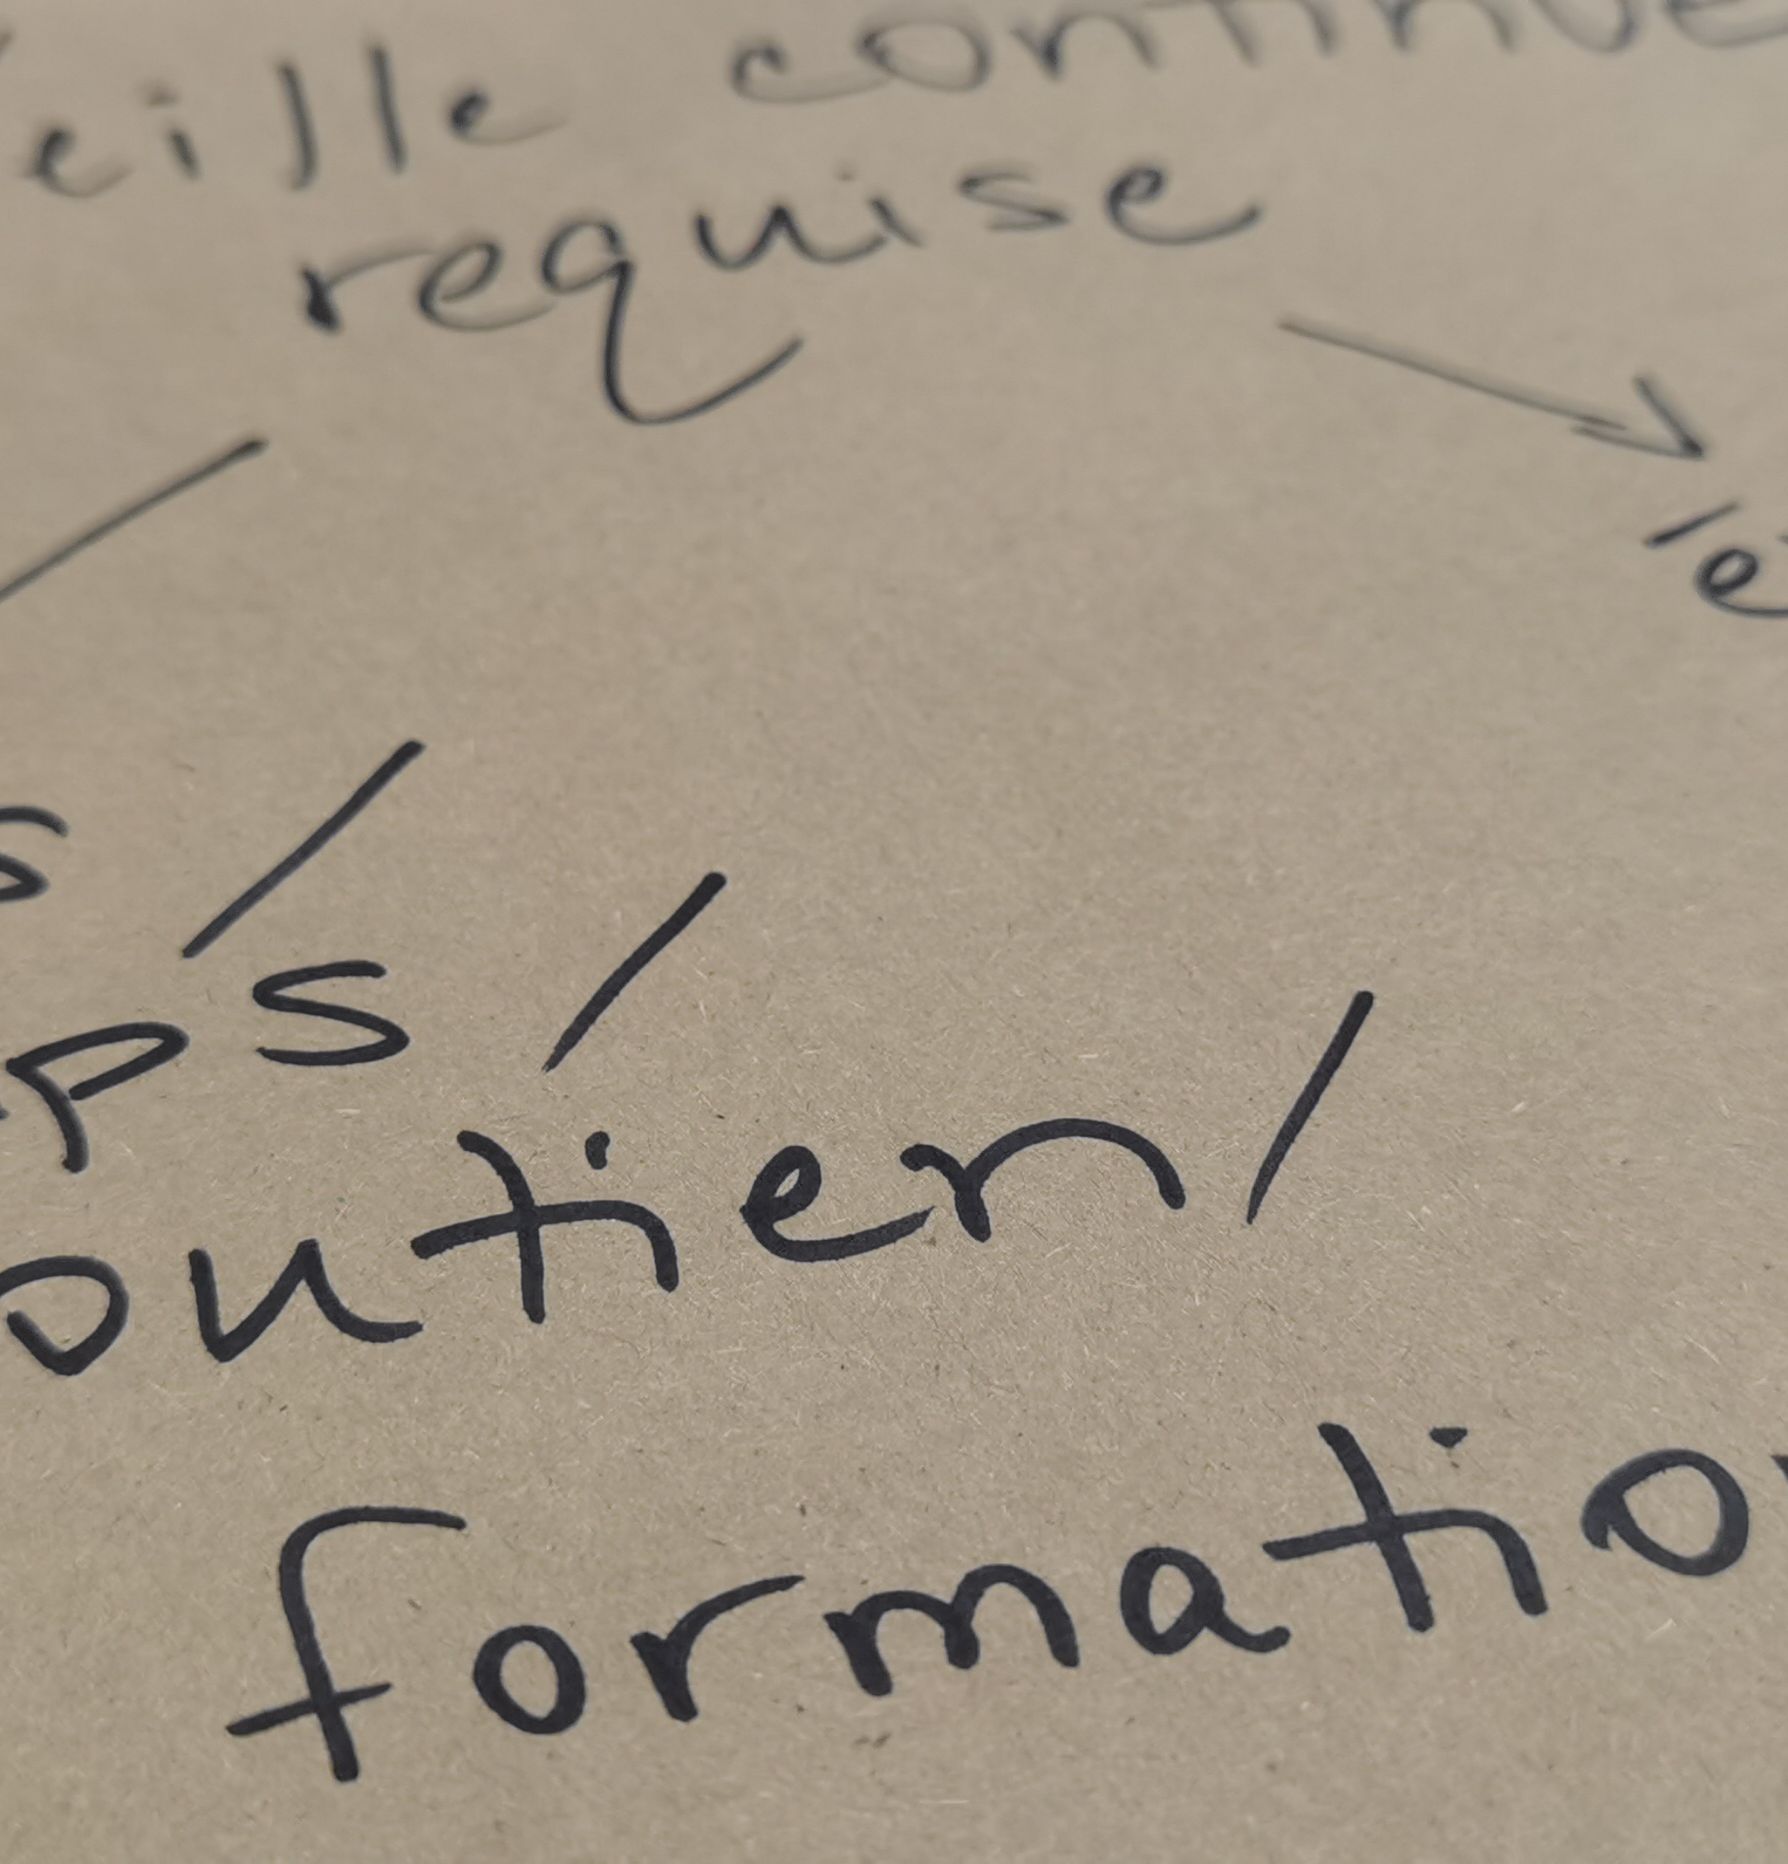 eille continue
requise
é
s /
ps /
outien /
formatio